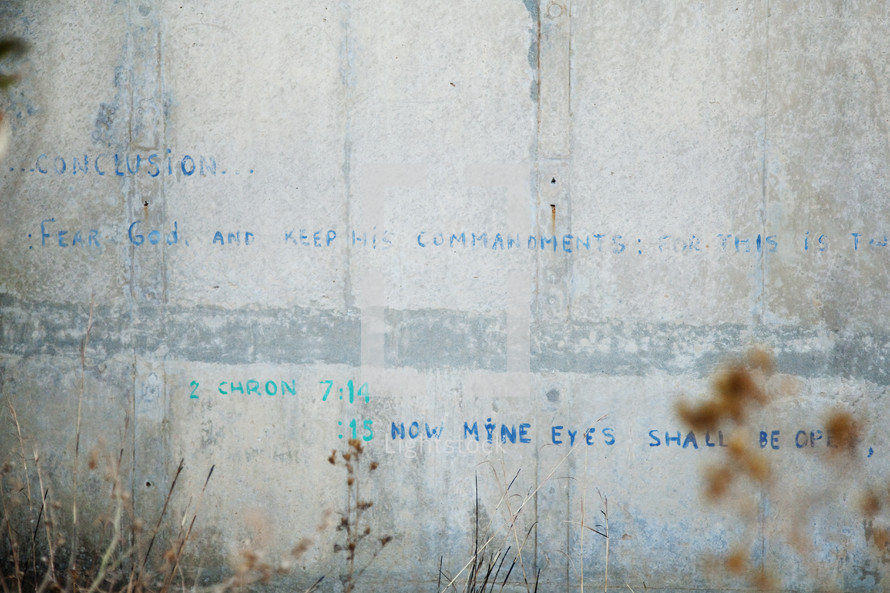 ...CONCLUSION...
:FEAR God, AND KEEP HIS COMMANDMENTS: FOR THIS IS
2 CHRON 7:14
:15 NOW MINE EYES SHALL BE